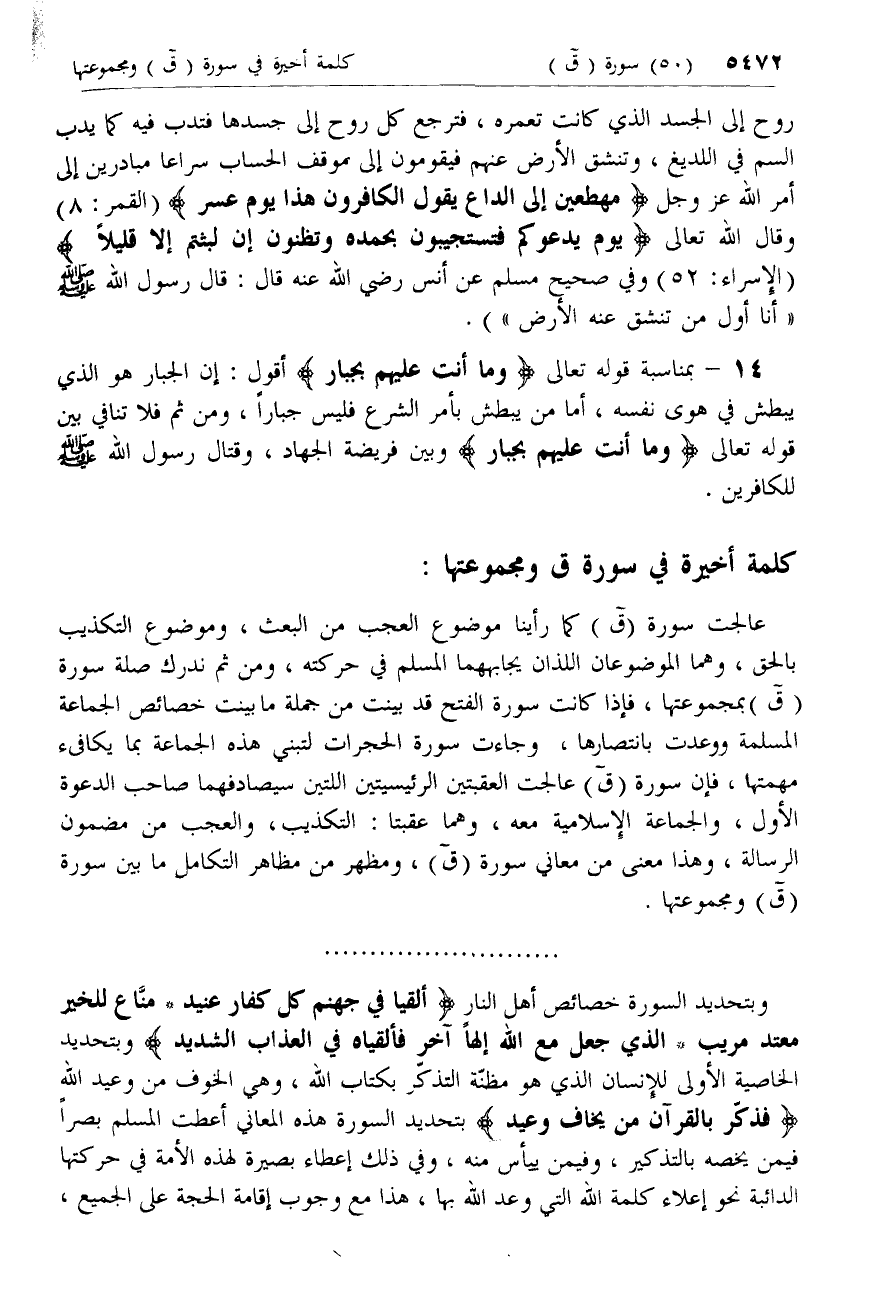 ٥٤٧٢ (٥٠) سورة ( قۤ ) كلمة أخيرة في سورة ( قۤ ) ومجموعتها
روح إلى الجسد الذي كانت تعمره ، فترجع كل روح إلى جسدها فتدب فيه كما يدب
السم في اللديغ ، وتنشق الأرض عنهم فيقومون إلى موقف الحساب سراعا مبادرين إلى
أمر الله عز وجل ﴿ مهطعين إلى الداع يقول الكافرون هذا يوم عسر ﴾ (القمر : ٨)
وقال الله تعالى ﴿ يوم يدعوكم فتستجيبون بحمده وتظنون إن لبثتم إلا قليلاً ﴾
(الإسراء : ٥٢) وفي صحيح مسلم عن أنس رضي الله عنه قال : قال رسول الله ﷺ
« أنا أول من تنشق عنه الأرض » ) .
١٤ - بمناسبة قوله تعالى ﴿ وما أنت عليهم بجبار ﴾ أقول : إن الجبار هو الذي
يبطش في هوى نفسه ، أما من يبطش بأمر الشرع فليس جباراً ، ومن ثم فلا تنافي بين
قوله تعالى ﴿ وما أنت عليهم بجبار ﴾ وبين فريضة الجهاد ، وقتال رسول الله ﷺ
للكافرين .
كلمة أخيرة في سورة ق ومجموعتها :
عالجت سورة (قۤ ) كما رأينا موضوع العجب من البعث ، وموضوع التكذيب
بالحق ، وهما الموضوعان اللذان يجابههما المسلم في حركته ، ومن ثم ندرك صلة سورة
( قۤ ) بمجموعتها ، فإذا كانت سورة الفتح قد بينت من جملة مابينت خصائص الجماعة
المسلمة ووعدت بانتصارها ، وجاءت سورة الحجرات لتبني هذه الجماعة بما يكافىء
مهمتها ، فإن سورة (قۤ) عالجت العقبتين الرئيسيتين اللتين سيصادفهما صاحب الدعوة
الأول ، والجماعة الإسلامية معه ، وهما عقبتا : التكذيب، والعجب من مضمون
الرسالة ، وهذا معنى من معاني سورة (قۤ) ، ومظهر من مظاهر التكامل ما بين سورة
(قۤ) ومجموعتها .
..........................
وبتحديد السورة خصائص أهل النار ﴿ ألقيا في جهنم كل كفار عنيد * منَّاع للخير
معتد مريب * الذي جعل مع الله إلهاً آخر فألقياه في العذاب الشديد ﴾ وبتحديد
الخاصية الأولى للإنسان الذي هو مظنّة التذكّر بكتاب الله ، وهي الخوف من وعيد الله
﴿ فذكّر بالقرآن من يخاف وعيد ﴾ بتحديد السورة هذه المعاني أعطت المسلم بصراً
فيمن يخصه بالتذكير ، وفيمن ييأس منه ، وفي ذلك إعطاء بصيرة لهذه الأمة في حركتها
الدائبة نحو إعلاء كلمة الله التي وعد الله بها ، هذا مع وجوب إقامة الحجة على الجميع ،